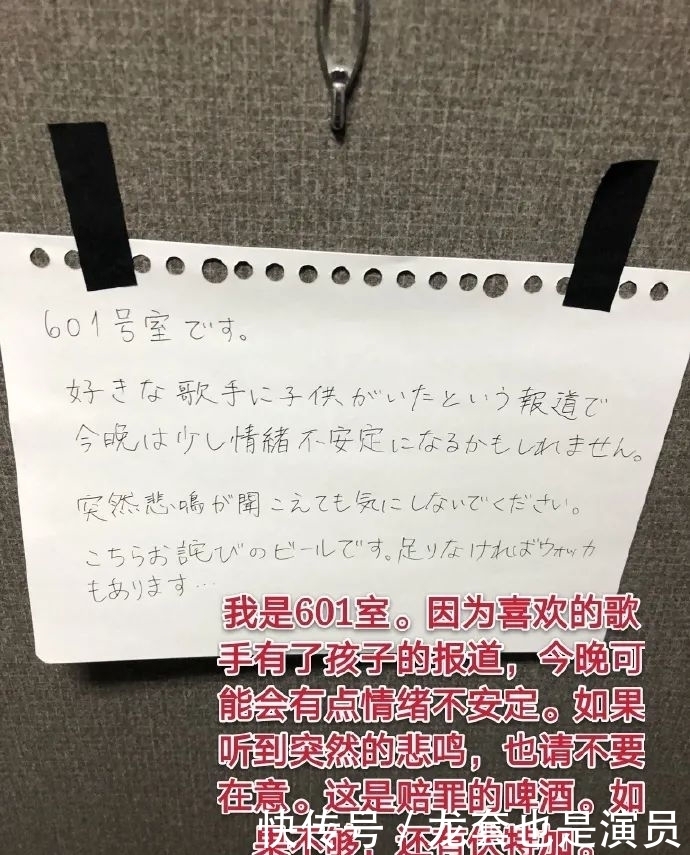 601号室です。
好きな歌手に子供がいたという報道で
今晩は少し情緒不安定になるかもしれません。
突然悲鳴が聞こえても気にしないでください。
こちらお詫びのビールです。足りなければウォッカ
もあります…
我是601室。因为喜欢的歌
手有了孩子的报道，今晚可
能会有点情绪不安定。如果
听到突然的悲鸣，也请不要
在意。这是赔罪的啤酒。如
果不够，还有伏特加。
快传号 / 龙套也是演员